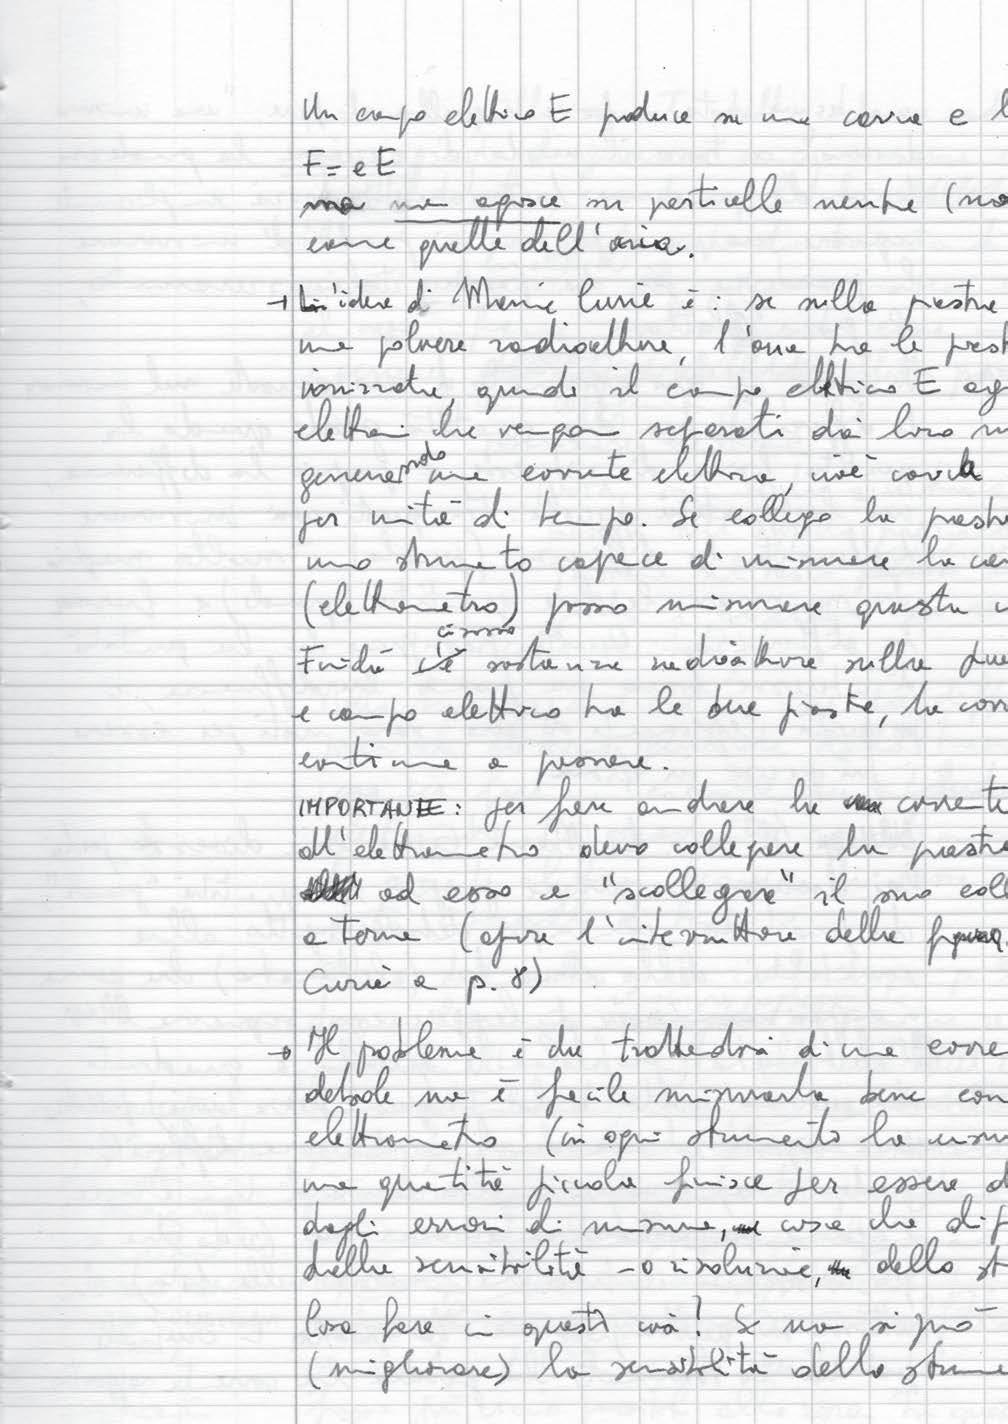 Un campo elettrico E produce su una carica e l
F = e E
ma non agisce su particelle neutre (no
come quelle dell'aria.
→ L'idea di Marie Curie è: se sulla piastra
una polvere radioattiva, l'aria tra le piast
ionizzata, quindi il campo elettrico E ag
elettroni che vengono separati dai loro
generando una corrente elettrica, cioè carica
per unità di tempo. Se collego la piastr
uno strumento capace di misurare la ca
(elettrometro) posso misurare questa
Finché ci sono sostanze radioattive sulla
e campo elettrico tra le due piastre, la corr
continua a passare.
IMPORTANTE: per fare andare la corrente
all'elettrometro devo collegare la piastra
ad esso e "scollegare" il suo coll
a terra (aprire l'interruttore della
Curie a p. 8)
→ Il problema è che trattandosi di una corre
debole non è facile misurarla bene con
elettrometro (in ogni strumento la misu
una quantità piccola finisce per essere d
dagli errori di misura, cosa che dip
dalla sensibilità -o risoluzione, dello st
Cosa fare in questi casi? Se non si può
(migliorare) la sensibilità dello strume